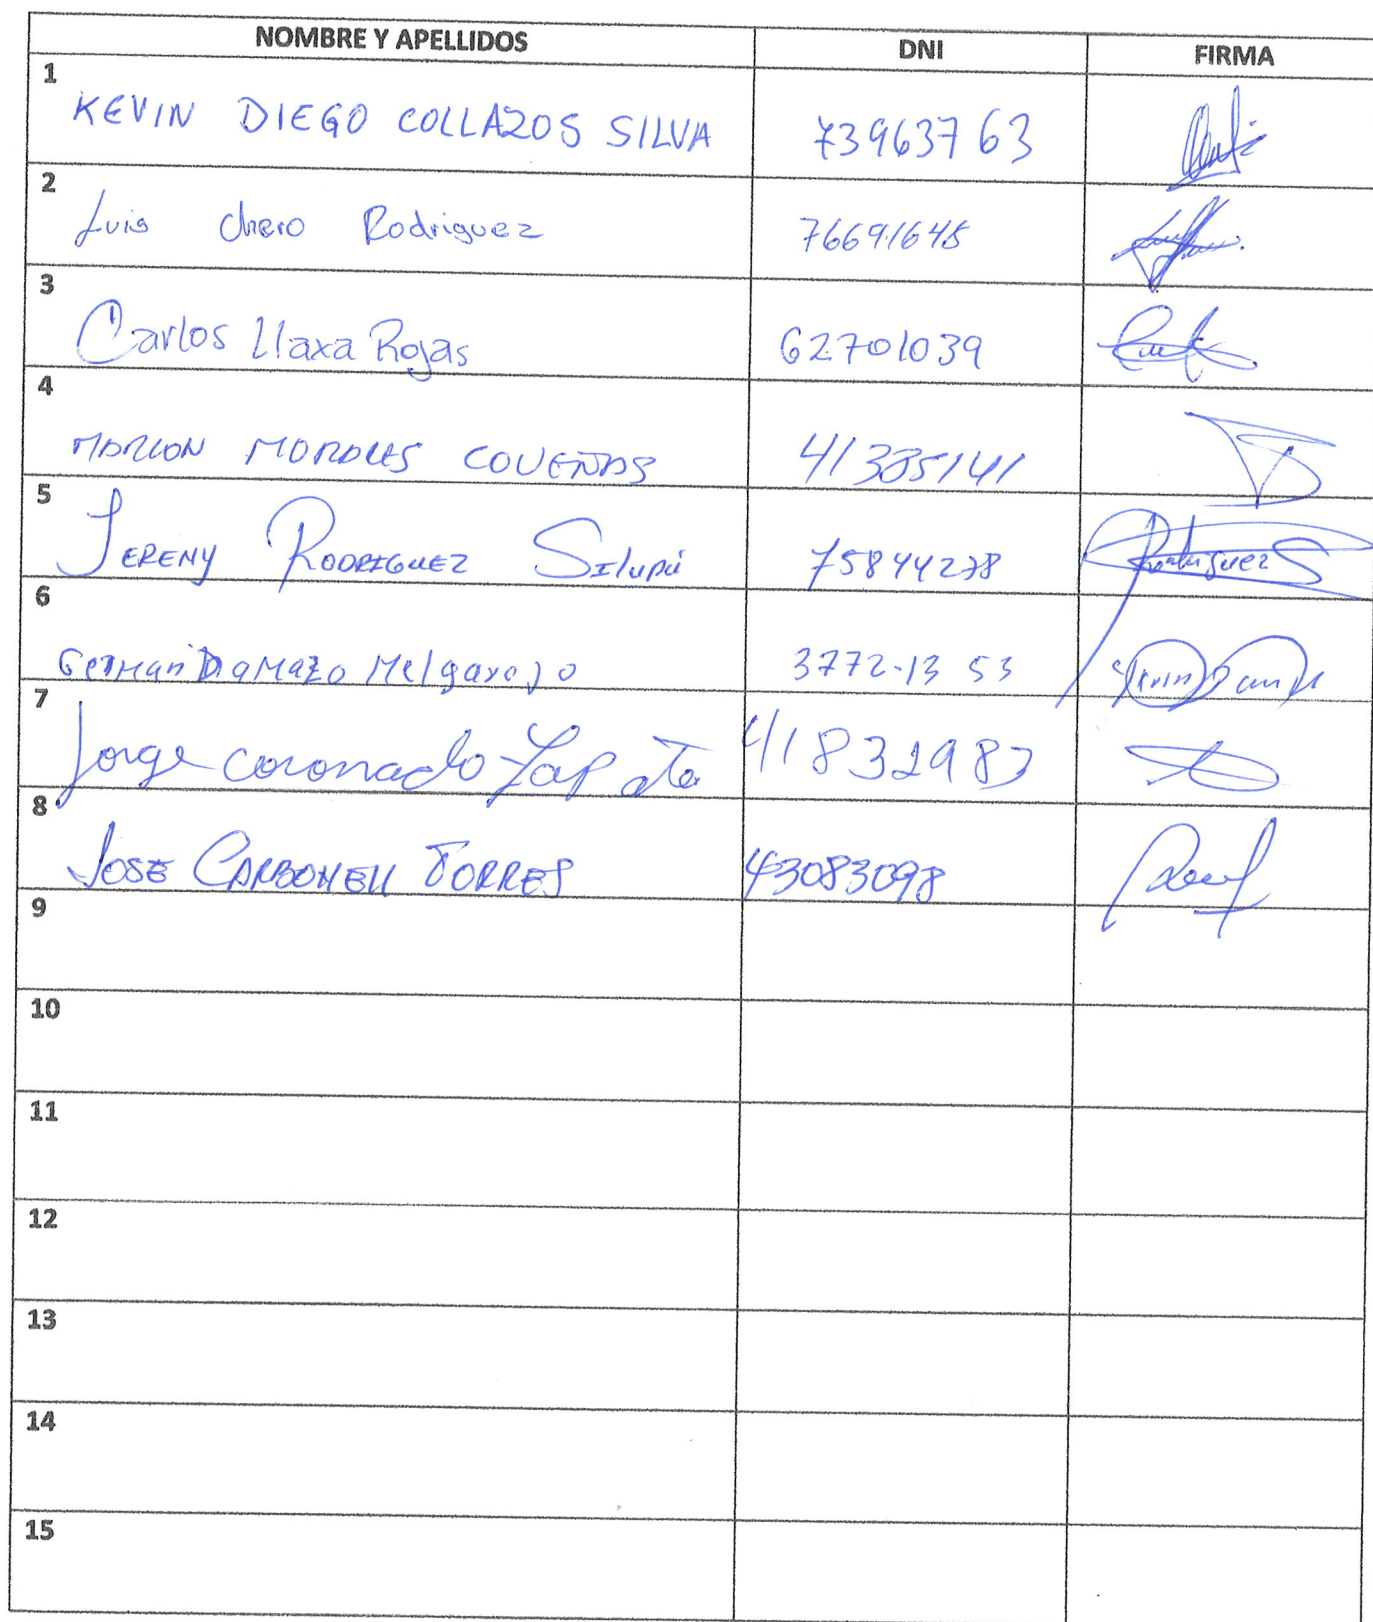 NOMBRE Y APELLIDOS DNI FIRMA
1
KEVIN DIEGO COLLAZOS SILVA 73963763
2
Luis Chero Rodriguez 76691645
3
Carlos Llaxa Rojas 62701039
4
MARLON MORALES COVEÑAS 41385141
5
JERENY RODRIGUEZ SILUPÚ 75844278 Rodriguez S
6
German Damazo Melgarejo 3772-13 53
7
Jorge coronado Zapata 41832983
8
JOSE CARBONELL TORRES 43083098
9
10
11
12
13
14
15